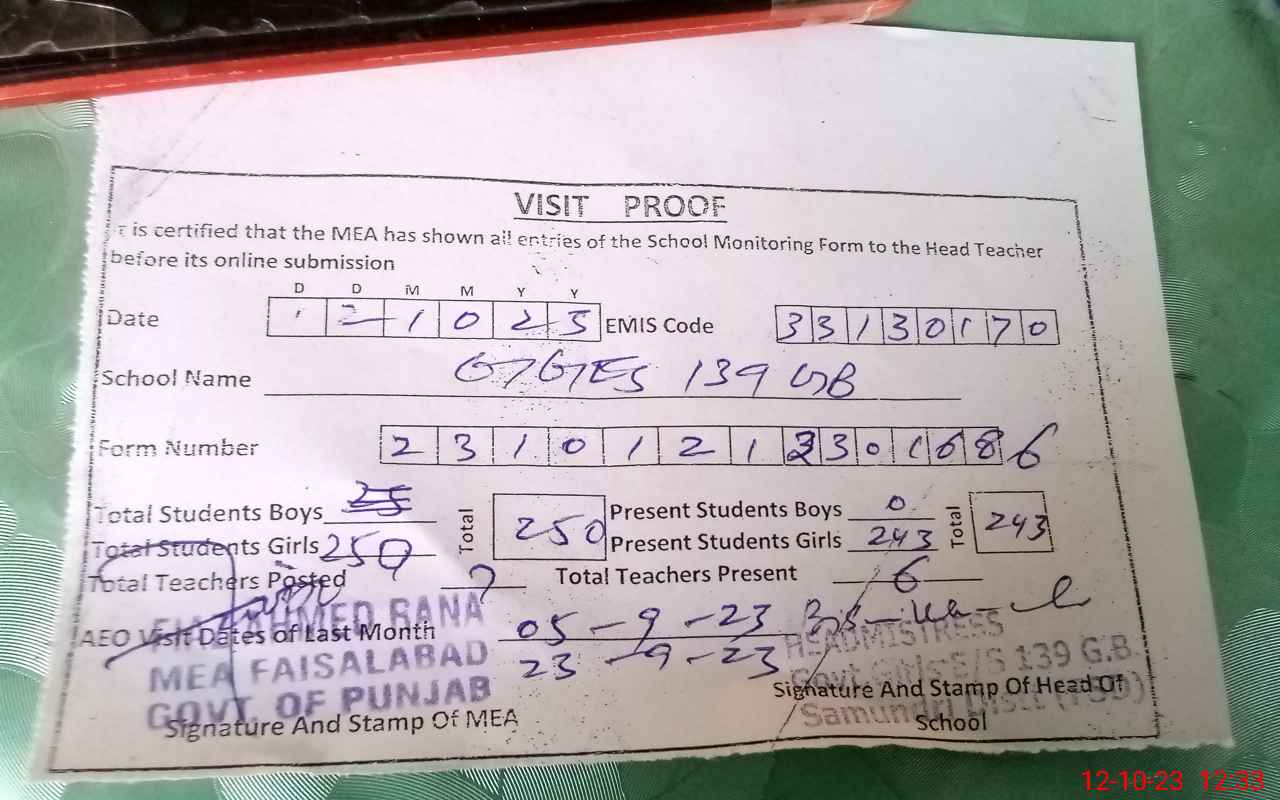 VISIT PROOF
It is certified that the MEA has shown all entries of the School Monitoring Form to the Head Teacher
before its online submission
D D M M Y Y
Date 1 2 1 0 2 3 EMIS Code 3 3 1 3 0 1 7 0
School Name GGES 139 GB
Form Number 2 3 1 0 1 2 1 3 3 0 1 6 8 6
Total Students Boys 25 Total 250 Present Students Boys 0 Total 243
Total Students Girls 250 Present Students Girls 243
Total Teachers Posted 7 Total Teachers Present 6
AEO Visit Dates of Last Month 05-9-23
23-9-23
AHMED RANA
MEA FAISALABAD
GOVT. OF PUNJAB
Signature And Stamp Of MEA
HEADMISTRESS
Govt. Girls E/S 139 G.B.
Samundri Distt (FSD)
Signature And Stamp Of Head Of
School
12-10-23 12:33